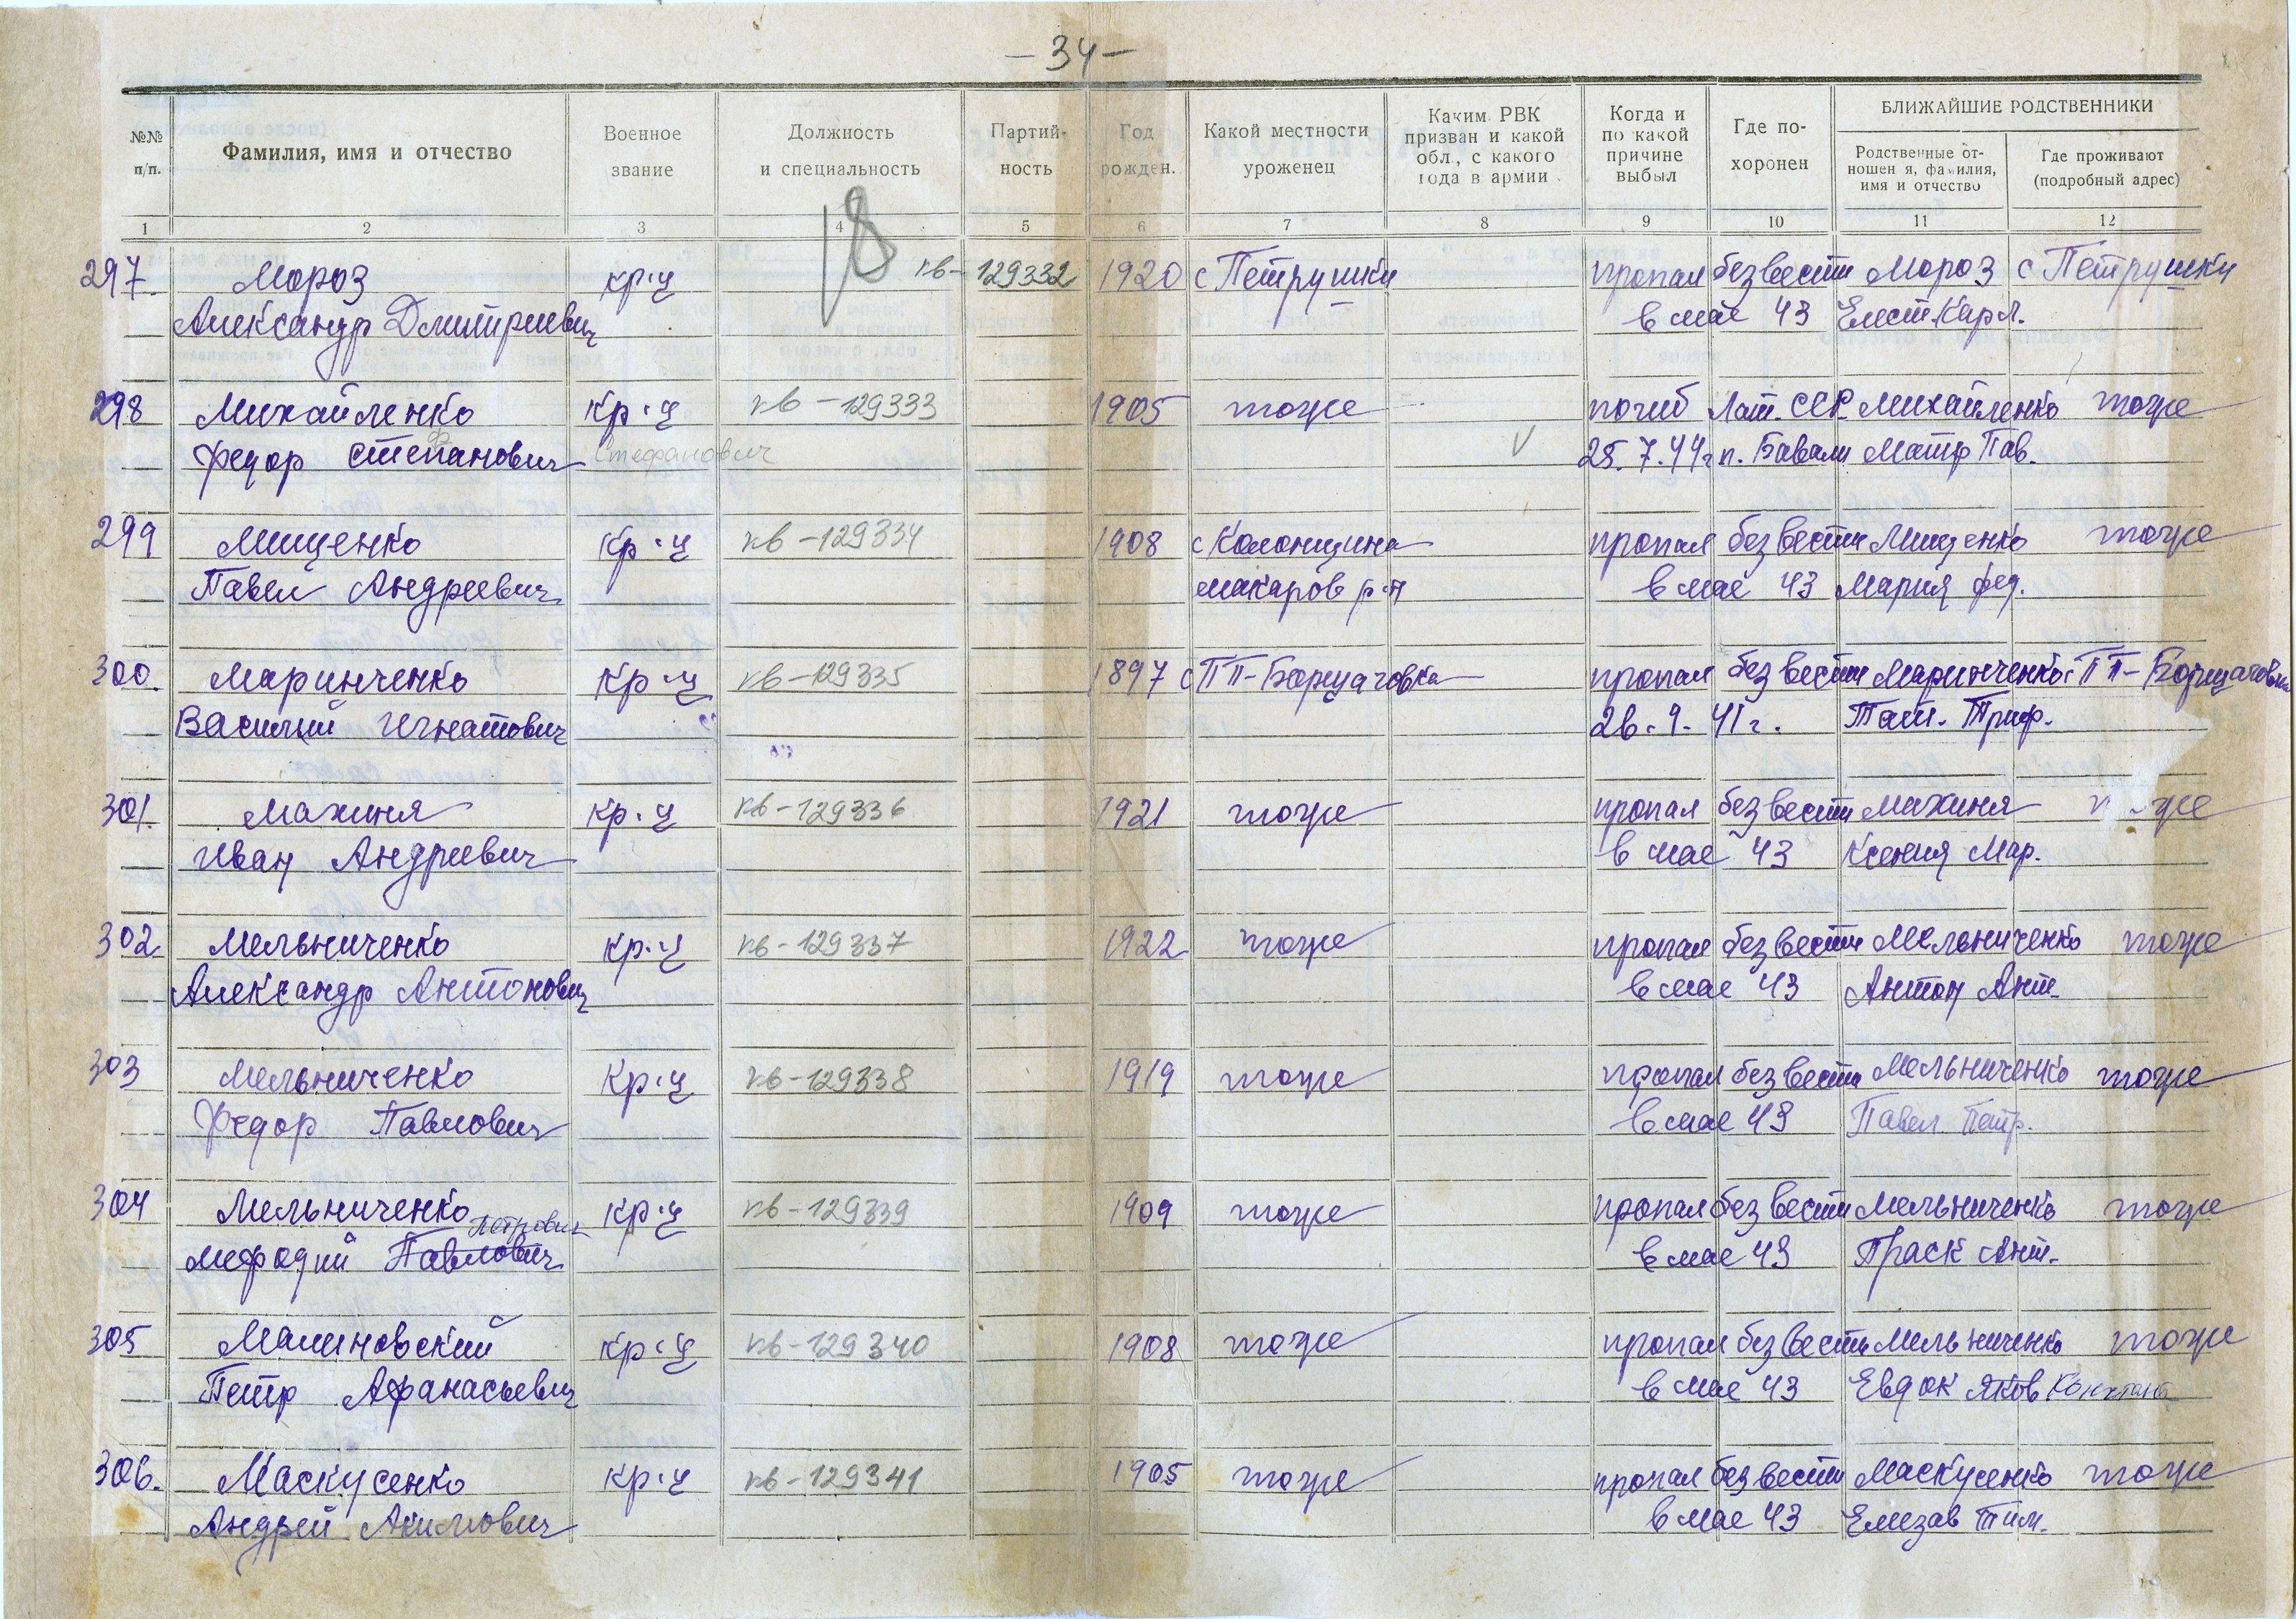 — 34 —
№№ п/п. Фамилия, имя и отчество Военное звание Должность и специальность Партий- ность Год рожден. Какой местности уроженец Каким РВК призван и какой обл., с какого года в армии Когда и по какой причине выбыл Где по- хоронен БЛИЖАЙШИЕ РОДСТВЕННИКИ
Родственные от- ношен я, фамилия, имя и отчество Где проживают (подробный адрес)
1 2 3 4 5 6 7 8 9 10 11 12
18
297. Мороз кр-ц кв-129332 1920 с Петрушки пропал без вести Мороз с Петрушки
Александр Дмитриевич в мае 43 Елест. Карл.
298 Михайленко кр-ц кв-129333 1905 тоже погиб Лат. ССР Михайленко тоже
Федор Степанович ф Стефанович V 25.7.44г п. Бавали Матр Пав.
299 Мищенко кр-ц кв-129334 1908 с Колонщина пропал без вести Мищенко тоже
Павел Андреевич Макаров р-н в мае 43 Мария Фед.
300. Маринченко кр-ц кв-129335 1897 с ПП-Борщаговка пропал без вести Маринченко с ПП-Борщаговка
Василий Игнатович 26.9.41г. Тат. Триф.
301. Махиня кр-ц кв-129336 1921 тоже пропал без вести Махиня же
Иван Андреевич в мае 43 Ксения Мар.
302 Мельниченко кр-ц кв-129337 1922 тоже пропал без вести Мельниченко тоже
Александр Антонович в мае 43 Антон Ант.
303 Мельниченко кр-ц кв-129338 1919 тоже пропал без вести Мельниченко тоже
Федор Павлович в мае 43 Павел Петр.
304 Мельниченко кр-ц кв-129339 1909 тоже пропал без вести Мельниченко тоже
Петрович
Мефодий Павлович в мае 43 Праск Ант.
305 Малиновский кр-ц кв-129340 1908 тоже пропал без вести Мельниченко тоже
Петр Афанасьевич в мае 43 Евдок Яков
306. Маскусенко кр-ц кв-129341 1905 тоже пропал без вести Маскусенко тоже
Андрей Акимович в мае 43 Елизав Тим.